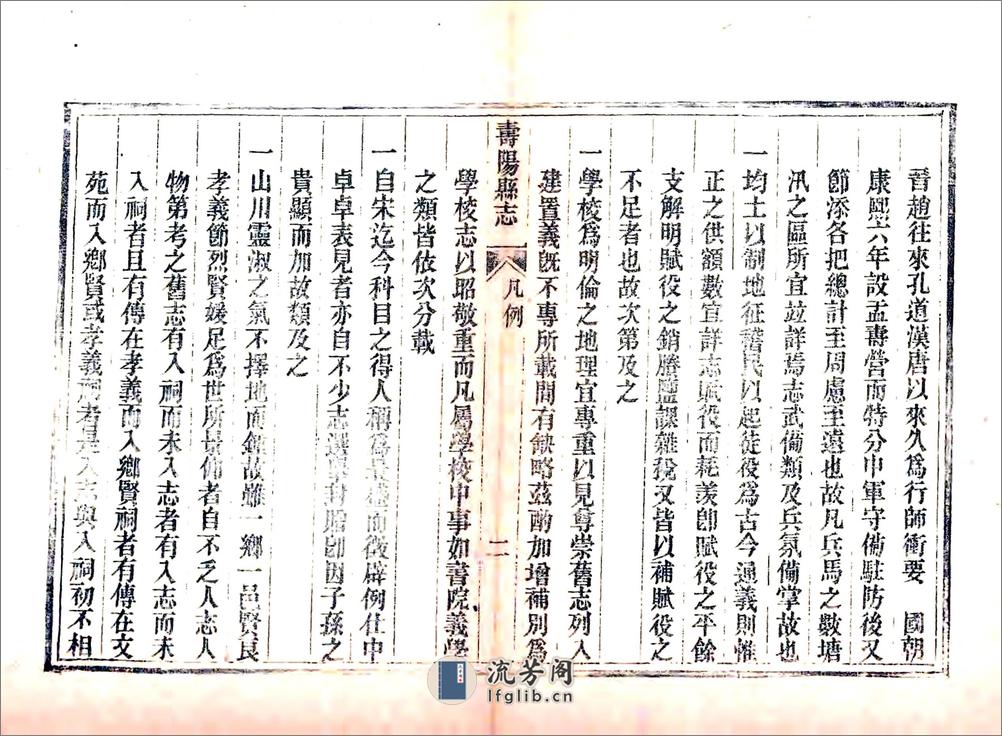 晉趙往來孔道漢唐以來久爲行師衝要　國朝
康熙六年設盂壽營而特分中軍守備駐防後又
節添各把總計至周慮至遠也故凡兵馬之數塘
汛之區所宜竝詳焉志武備類及兵氛備掌故也
一均土以制地征稽民以起徒役爲古今通義則惟
正之供額數宜詳志賦役而耗羨卽賦役之平餘
支解明賦役之銷賸鹽課雜稅又皆以補賦役之
不足者也故次第及之
一學校爲明倫之地理宜專重以見尊崇舊志列入
建置義旣不專所載間有缺略茲酌加增補別爲
壽陽縣志　凡例　二
學校志以昭敬重而凡屬學校中事如書院義學
之類皆依次分載
一自宋迄今科目之得人稱爲而徵辟例仕中
卓卓表見者亦自不少志選舉封貤卽因子孫之
貴顯而加故類及之
一山川靈淑之氣不擇地而鍾故雖一鄉一邑賢良
孝義節烈賢媛足爲世所景仰者自不乏人志人
物第考之舊志有入祠而未入志者有入志而未
入祠者且有傳在孝義而入鄉賢祠者有傳在文
苑而入鄉賢或孝義祠者是入志與入祠初不相
流芳阁
lfglib.cn